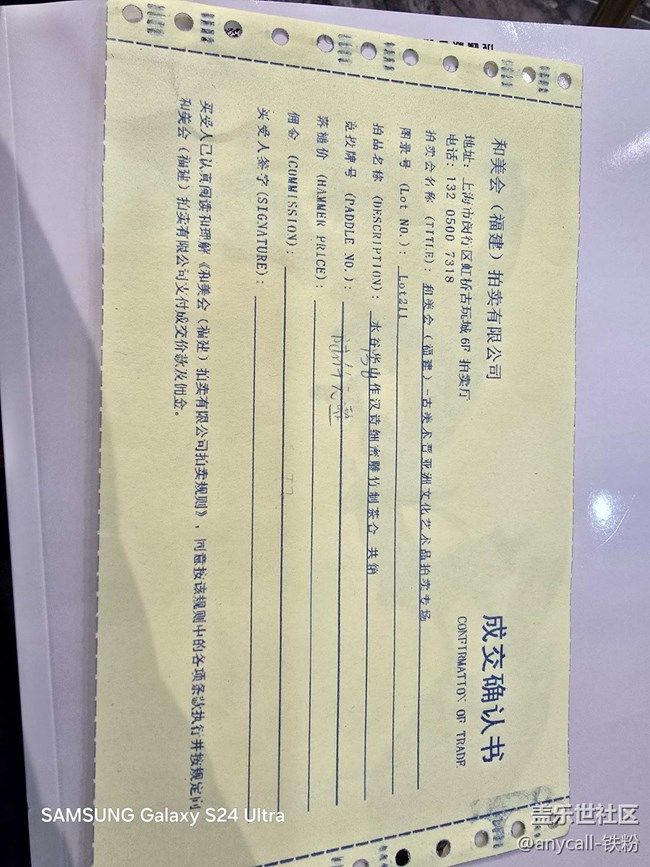 和美会（福建）拍卖有限公司
成交确认书
地址：上海市闵行区虹桥古玩城 6F 拍卖厅
CONFIRMATION OF TRADE
电话：132 0500 7318
拍卖会名称（TITLE）：和美会（福建）-古美术暨亚洲文化艺术品拍卖专场
图录号（Lot No.）：Lot211
拍品名称（DESCRIPTION）：水谷华山作汉诗细密雕竹制茶仑 共箱
竞投牌号（PADDLE NO.）：
落槌价（HAMMER PRICE）：
佣金（COMMISSION）：
买受人签字(SIGNATURE)：
买受人已认真阅读和理解《和美会（福建）拍卖有限公司拍卖规则》，同意按该规则中的各项条款执行并按规定向
和美会（福建）拍卖有限公司支付成交价款及佣金。
SAMSUNG Galaxy S24 Ultra
盖乐世社区
@anycall-铁粉